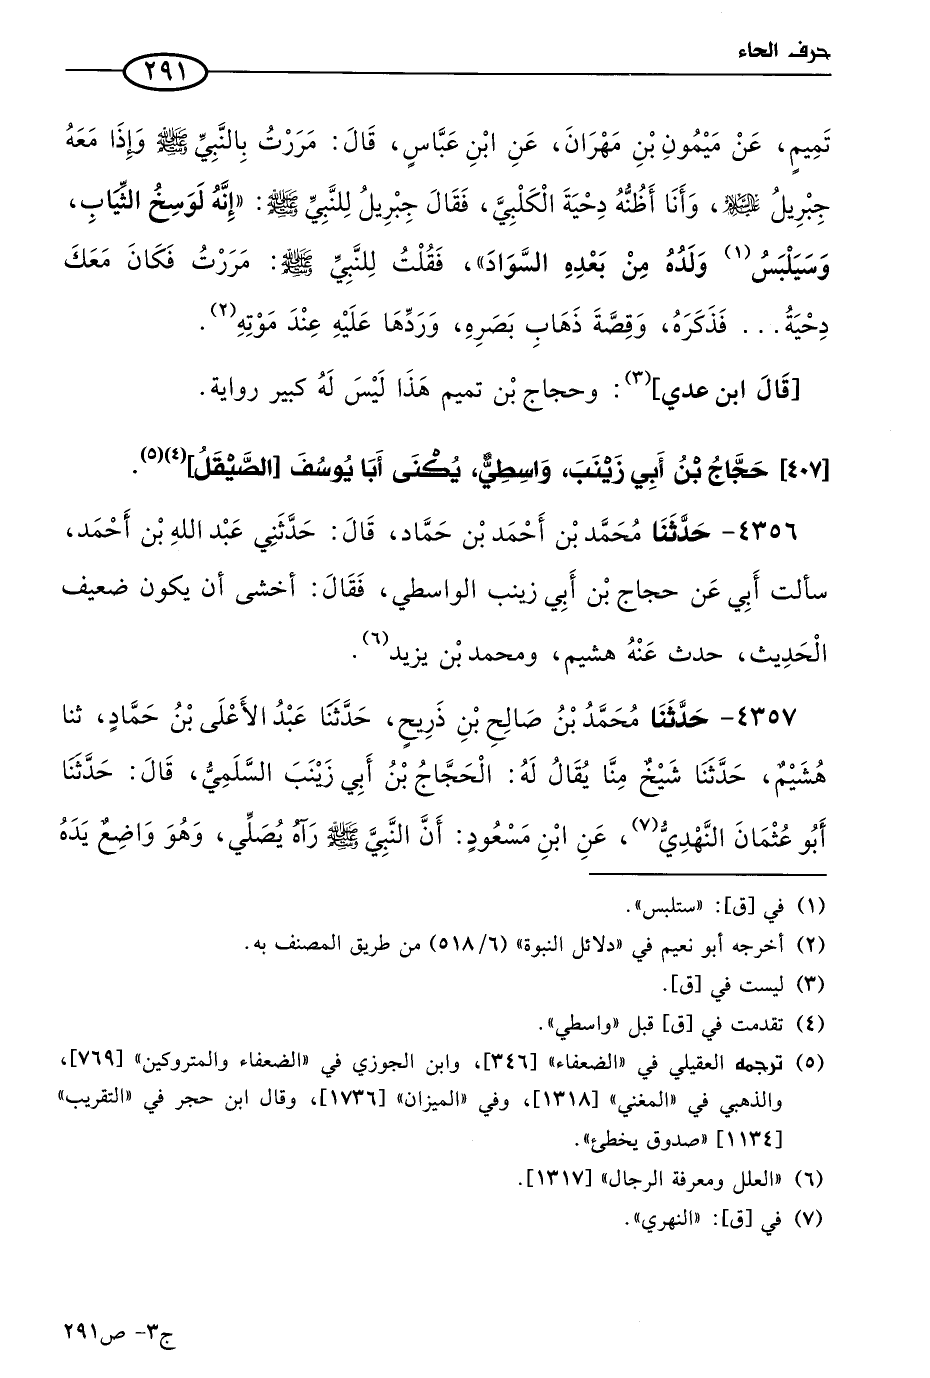 حرف الحاء
٢٩١
تَمِيمٍ، عَنْ مَيْمُونِ بْنِ مَهْرَانَ، عَنِ ابْنِ عَبَّاسٍ، قَالَ: مَرَرْتُ بِالنَّبِيِّ ﷺ وَإِذَا مَعَهُ
جِبْرِيلُ عليه السلام، وَأَنَا أَظُنُّهُ دِحْيَةَ الْكَلْبِيَّ، فَقَالَ جِبْرِيلُ لِلنَّبِيِّ ﷺ: «إِنَّهُ لَوَسِخُ الثِّيَابِ،
وَسَيَلْبَسُ(١) وَلَدُهُ مِنْ بَعْدِهِ السَّوَادَ»، فَقُلْتُ لِلنَّبِيِّ ﷺ: مَرَرْتُ فَكَانَ مَعَكَ
دِحْيَةُ... فَذَكَرَهُ، وَقِصَّةَ ذَهَابِ بَصَرِهِ، وَرَدِّهَا عَلَيْهِ عِنْدَ مَوْتِهِ(٢).
[قَالَ ابن عدي](٣): وحجاج بْن تميم هَذَا لَيْسَ لَهُ كبير رواية.
[٤٠٧] حَجَّاجُ بْنُ أَبِي زَيْنَبَ، وَاسِطِيٌّ، يُكْنَى أَبَا يُوسُفَ [الصَّيْقَلُ](٤)(٥).
٤٣٥٦- حَدَّثَنَا مُحَمَّد بْن أَحْمَد بْن حَمَّاد، قَالَ: حَدَّثَنِي عَبْد اللهِ بْن أَحْمَد،
سألت أَبِي عَن حجاج بْن أَبِي زينب الواسطي، فَقَالَ: أخشى أن يكون ضعيف
الْحَدِيث، حدث عَنْهُ هشيم، ومحمد بْن يزيد(٦).
٤٣٥٧- حَدَّثَنَا مُحَمَّدُ بْنُ صَالِحِ بْنِ ذَرِيحٍ، حَدَّثَنَا عَبْدُ الأَعْلَى بْنُ حَمَّادٍ، ثنا
هُشَيْمٌ، حَدَّثَنَا شَيْخٌ مِنَّا يُقَالُ لَهُ: الْحَجَّاجُ بْنُ أَبِي زَيْنَبَ السَّلَمِيُّ، قَالَ: حَدَّثَنَا
أَبُو عُثْمَانَ النَّهْدِيُّ(٧)، عَنِ ابْنِ مَسْعُودٍ: أَنَّ النَّبِيَّ ﷺ رَآهُ يُصَلِّي، وَهُوَ وَاضِعٌ يَدَهُ
(١) في [ق]: «ستلبس».
(٢) أخرجه أبو نعيم في «دلائل النبوة» (٥١٨/٦) من طريق المصنف به.
(٣) ليست في [ق].
(٤) تقدمت في [ق] قبل «واسطي».
(٥) ترجمه العقيلي في «الضعفاء» [٣٤٦]، وابن الجوزي في «الضعفاء والمتروكين» [٧٦٩]،
والذهبي في «المغني» [١٣١٨]، وفي «الميزان» [١٧٣٦]، وقال ابن حجر في «التقريب»
[١١٣٤] «صدوق يخطئ».
(٦) «العلل ومعرفة الرجال» [١٣١٧].
(٧) في [ق]: «النهري».
ج٣- ص٢٩١